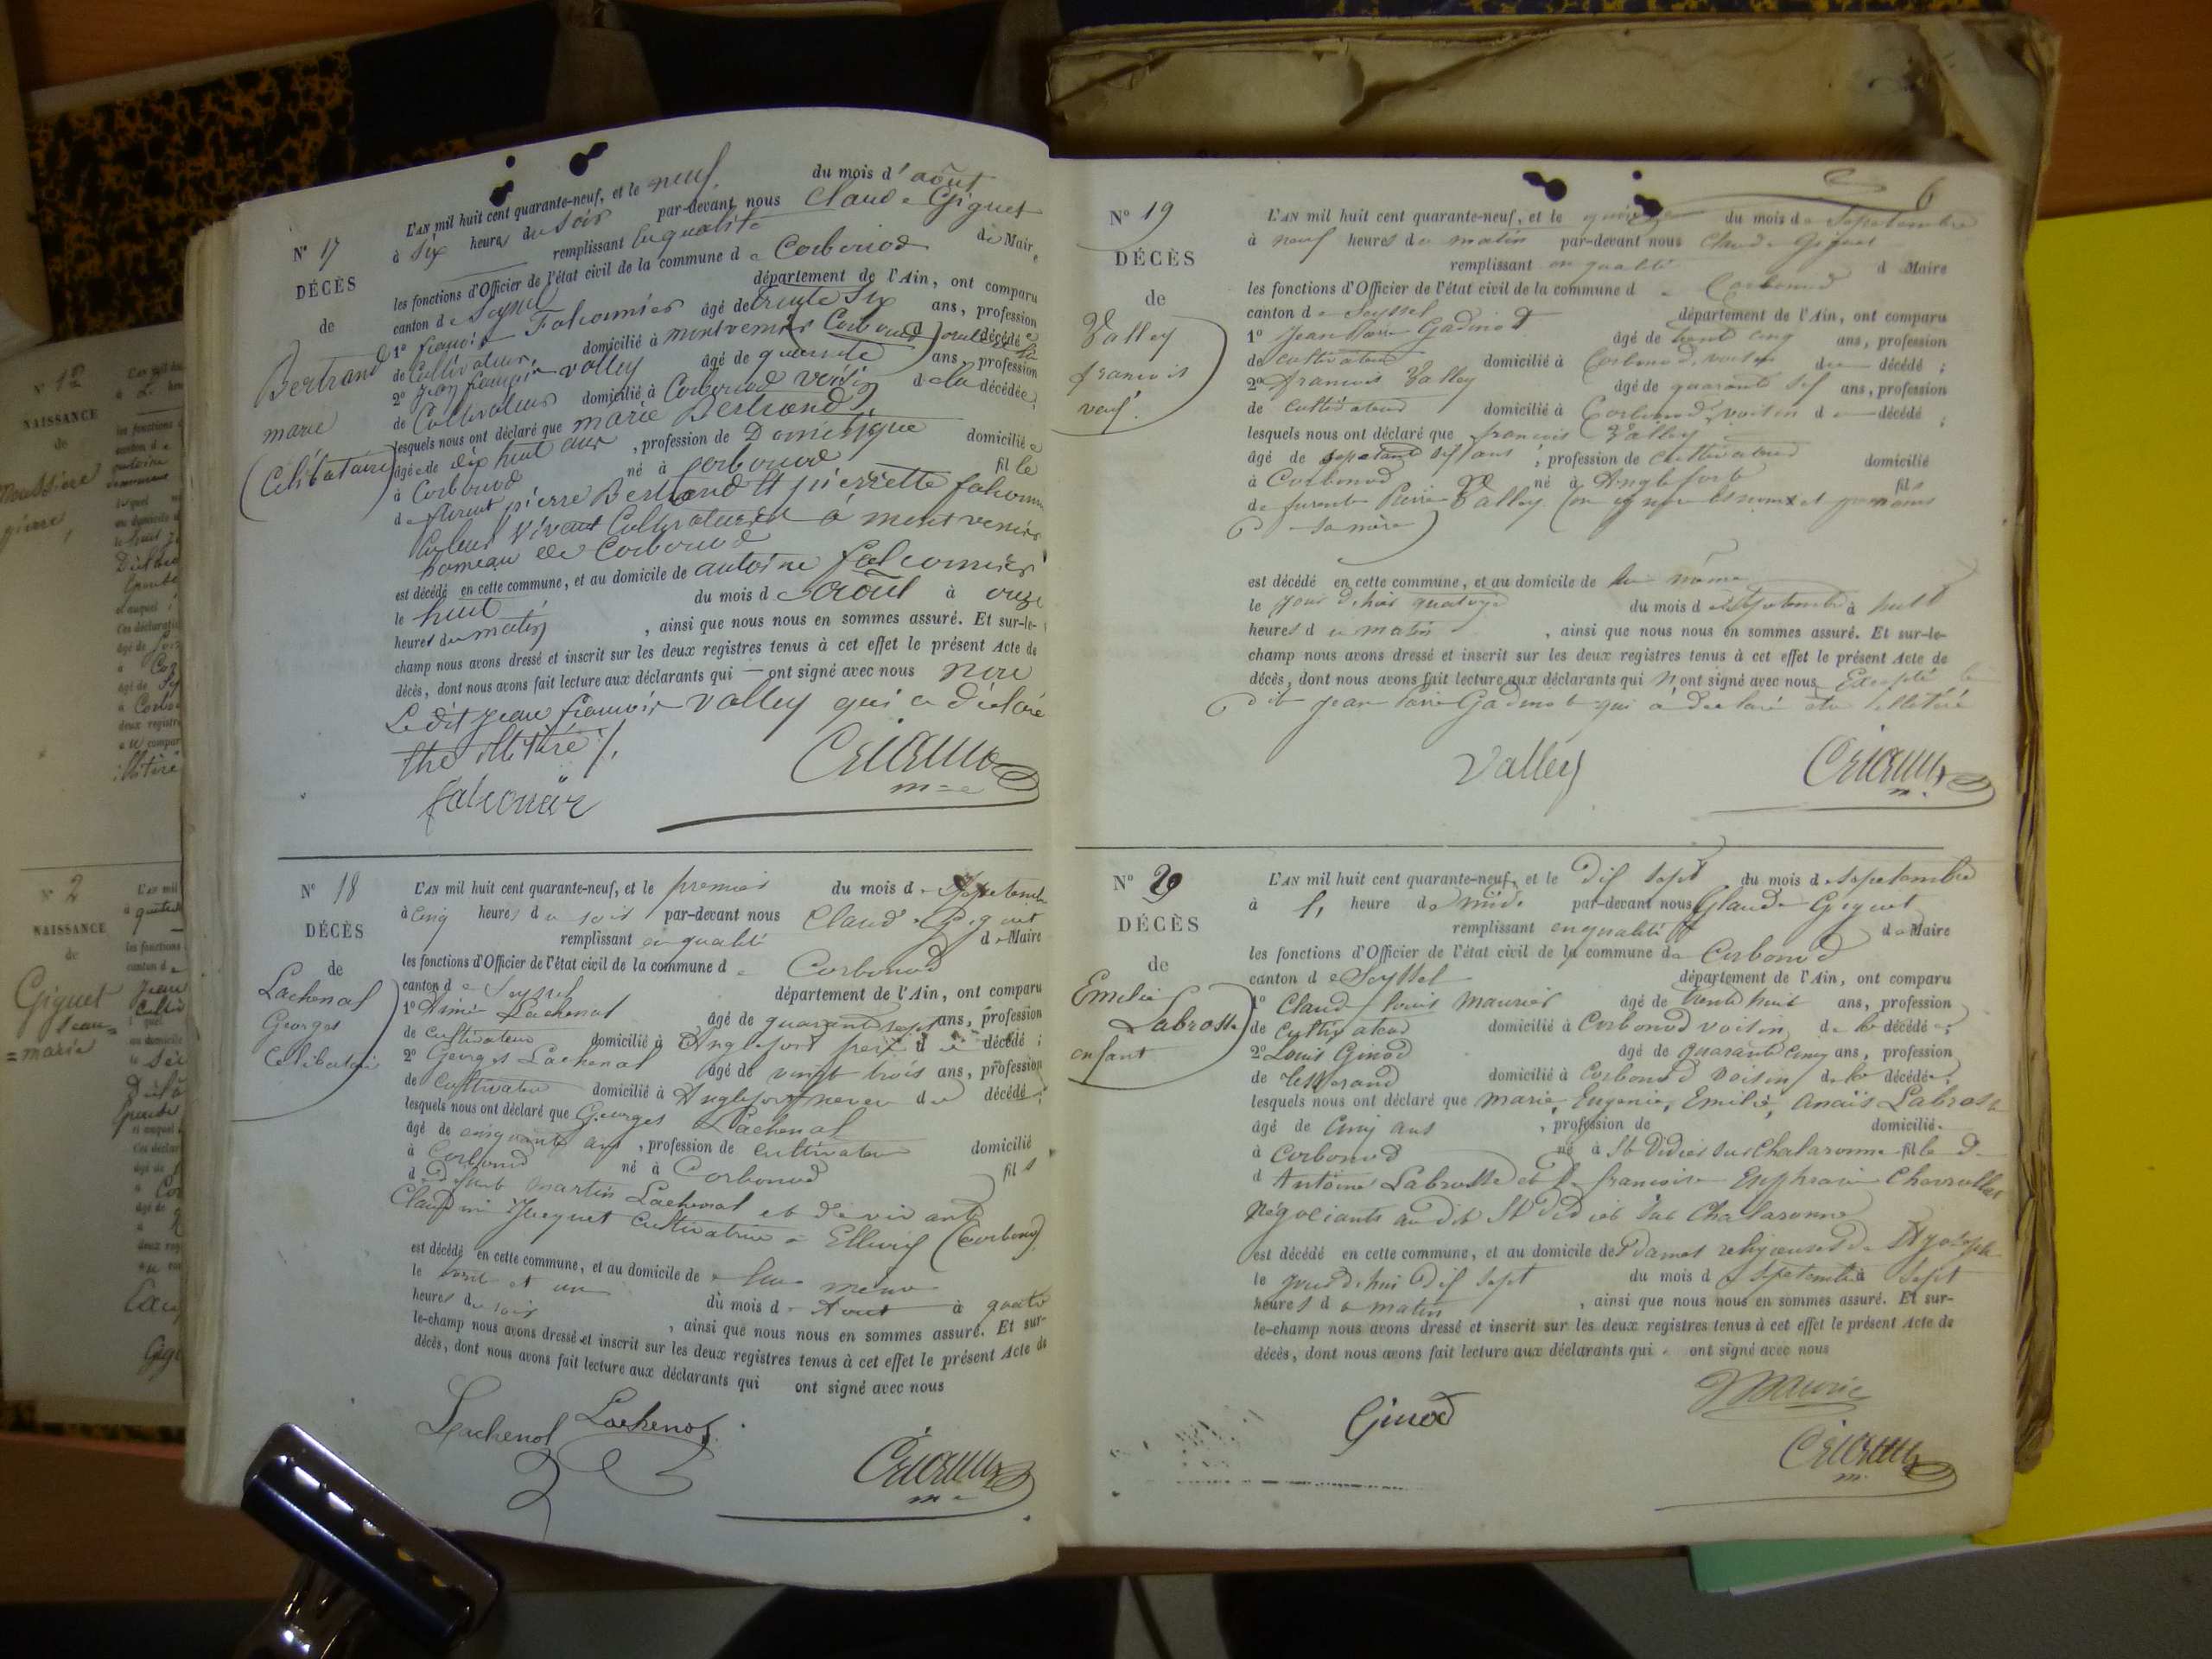 N° 17
DÉCÈS
de
Bertrand
marie
(Célibataire)
L'AN mil huit cent quarante-neuf, et le neuf du mois d'août
à six heures du soir par-devant nous Claude Giguet
remplissant en qualité de Maire
les fonctions d'Officier de l'état civil de la commune de Corbonod
canton de Seyssel département de l'Ain, ont comparu
1° françois Falconnier âgé de trente six ans, profession
de Cultivateur domicilié à montvenier (Corbonod) décédée
2° jean françois valley âgé de quarante ans, profession
de Cultivateur domicilié à Corbonod voisin de la décédée;
lesquels nous ont déclaré que marie Bertrand
âgée de dix huit ans, profession de Domestique domiciliée
à Corbonod né à corbonod fille
de pierre Bertrand et pierrette falconnier
vivant Cultivateurs à montvenier
hameau de Corbonod
est décédé en cette commune, et au domicile de antoine falconnier
le huit du mois d août à onze
heures du matin, ainsi que nous nous en sommes assuré. Et sur-le-
champ nous avons dressé et inscrit sur les deux registres tenus à cet effet le présent Acte de
décès, dont nous avons fait lecture aux déclarants qui — ont signé avec nous non
Le dit jean françois valley qui a déclaré
être illitéré
falconnier
N° 18
DÉCÈS
de
Lachenal
Georges
Celibataire
L'AN mil huit cent quarante-neuf, et le premier du mois de Septembre
à cinq heures du soir par-devant nous Claude Giguet
remplissant en qualité de Maire
les fonctions d'Officier de l'état civil de la commune de Corbonod
canton de Seyssel département de l'Ain, ont comparu
1° Aimé Lachenal âgé de quarante sept ans, profession
de cultivateur domicilié à Anglefort frere du décédé;
2° Georges Lachenal âgé de vingt trois ans, profession
de Cultivateur domicilié à Anglefort neveu du décédé;
lesquels nous ont déclaré que Georges Lachenal
âgé de cinquante ans, profession de cultivateur domicilié
à Corbonod né à Corbonod fils
de defunt martin Lachenal et de vivante
Claudine Jacquet Cultivatrice à (Corbonod)
est décédé en cette commune, et au domicile de lui même
le trente et un du mois d Aout à quatre
heures du soir, ainsi que nous nous en sommes assuré. Et sur-
le-champ nous avons dressé et inscrit sur les deux registres tenus à cet effet le présent Acte de
décès, dont nous avons fait lecture aux déclarants qui ont signé avec nous
Lachenal Lachenal
6
N° 19
DÉCÈS
de
Valley
francois
veuf.
L'AN mil huit cent quarante-neuf, et le quinze du mois de Sepetembre
à neuf heures du matin par-devant nous Claude Giguet
remplissant en qualité d Maire
les fonctions d'Officier de l'état civil de la commune de Corbonod
canton de Seyssel département de l'Ain, ont comparu
1° Jean Pierre Gadinot âgé de trente cinq ans, profession
de cultivateur domicilié à Corbonod voisin du décédé;
2° francois Valley âgé de quarante sept ans, profession
de cultivateur domicilié à Corbonod voisin du décédé;
lesquels nous ont déclaré que francois Valley
âgé de ans, profession de cultivateur domicilié
à Corbonod né à Anglefort fils
de Pierre Valley (on ignore les noms et prenoms
de sa mère)
est décédé en cette commune, et au domicile de lui même
le jour d'hier quatorze du mois de Sepetembre à huit
heures du matin, ainsi que nous nous en sommes assuré. Et sur-le-
champ nous avons dressé et inscrit sur les deux registres tenus à cet effet le présent Acte de
décès, dont nous avons fait lecture aux déclarants qui n'ont signé avec nous Excepté le
dit jean Pierre Gadinot qui a déclaré etre illitéré
Valley
N° 20
DÉCÈS
de
Emelie
Labrosse
enfant
L'AN mil huit cent quarante-neuf, et le dif sept du mois de sepetembre
à 1, heure de midi par-devant nous Glaude Giguet
remplissant en qualité de Maire
les fonctions d'Officier de l'état civil de la commune de Corbonod
canton de Seyssel département de l'Ain, ont comparu
1° Claude louis Maurier âgé de trente huit ans, profession
de cultivateur domicilié à Corbonod voisin de la décédée;
2° Louis Ginod âgé de quarante cinq ans, profession
de tisserand domicilié à Corbonod voisin de la décédée;
lesquels nous ont déclaré que marie, Eugenie, Emilie, anaïs Labrosse
âgé de Cinq ans, profession de domicilié
à Corbonod né à St Didier sur Chalaronne fille
d'Antoine Labrosse et de francoise
négociants au dit St Didier sur Chalaronne
est décédé en cette commune, et au domicile de dames religieuses de St joseph
le jourdhui dif sept du mois de Sepetembre à sept
heures du matin, ainsi que nous nous en sommes assuré. Et sur-
le-champ nous avons dressé et inscrit sur les deux registres tenus à cet effet le présent Acte de
décès, dont nous avons fait lecture aux déclarants qui ont signé avec nous
Ginod
N° 12
NAISSANCE
de
N° 2
NAISSANCE
de
Giguet
Jean=
=marie